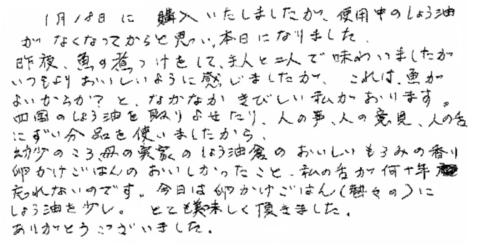 1月18日に 購入いたしましたが、使用中のしょう油
がなくなってからと思い、本日になりました。
昨夜、魚の煮つけをして、主人と二人で味わいましたが
いつもよりおいしいように感じましたが、これは、魚が
よいからか？と、なかなかきびしい私がおります。
四国のしょう油を取りよせたり、人の事、人の意見、人の舌
にずい分 品を使いましたから、
幼少のころ、母の実家のしょう油倉のおいしいもろみの香り
卵かけごはんのおいしかったこと、私の舌が何十年
忘れないのです。今日は卵かけごはん(熱々の)に
しょう油を少し。とても美味しく頂きました。
ありがとうございました。